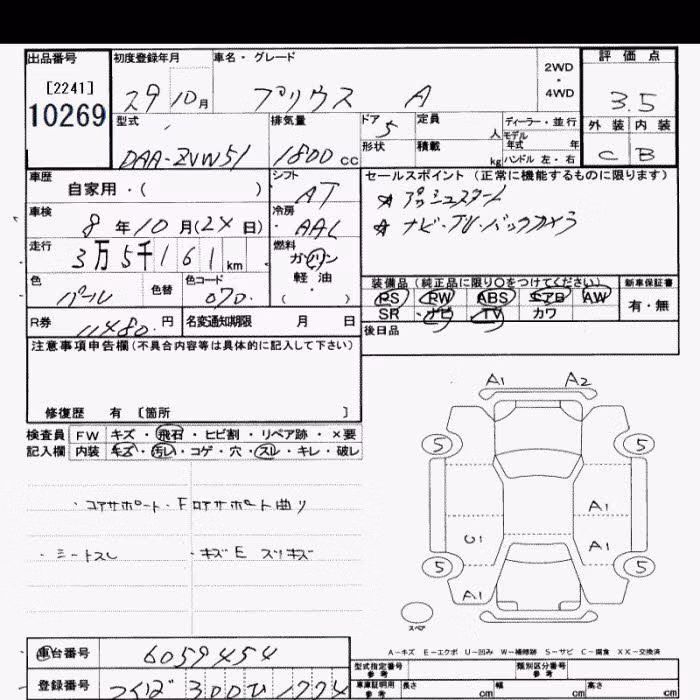 出品番号
[2241]
10269
初度登録年月
29 10 月
車名・グレード
プリウス A
2WD
・
4WD
評価点
3.5
外装 内装
C B
型式
DAA-ZVW51
排気量
1800 cc
ドア 5
形状
定員 人
積載 kg
ディーラー・並行
モデル年式 年
ハンドル 左・右
車歴
自家用・( )
シフト
AT
車検
8 年 10 月 (24 日)
冷房
AAC
走行
3万5千161 km
燃料
ガソリン
軽・油
( ・ )
色
パール
色替
色コード
070
R券
11480 円
名変通知期限 月 日
セールスポイント (正常に機能するものに限ります)
☆ プッシュスタート
☆ ナビ・TV・バックカメラ
装備品 (純正品に限り○をつけてください)
新車保証書
PS PW ABS エアB AW
SR ナビ TV カワ
有・無
後日品
注意事項申告欄 (不具合内容等は具体的に記入して下さい)
修復歴 有 〔箇所 〕
検査員
記入欄
FW キズ・飛石・ヒビ割・リペア跡・×要
内装 キズ・汚レ・コゲ・穴・スレ・キレ・破レ
・コアサポート・Fロアサポート曲リ
・シートスレ ・キズE スリキズ
A1 A2
5 5
A1
U1 A1
5 5
A1
スペア
A-キズ E-エクボ U-凹み W-補修跡 S-サビ C-腐食 XX-交換済
車台番号
6059454
登録番号
つくば 300 ひ 1774
型式指定番号
参考
類別区分番号
参考
車庫証明用
参考
長さ cm
幅 cm
高さ cm